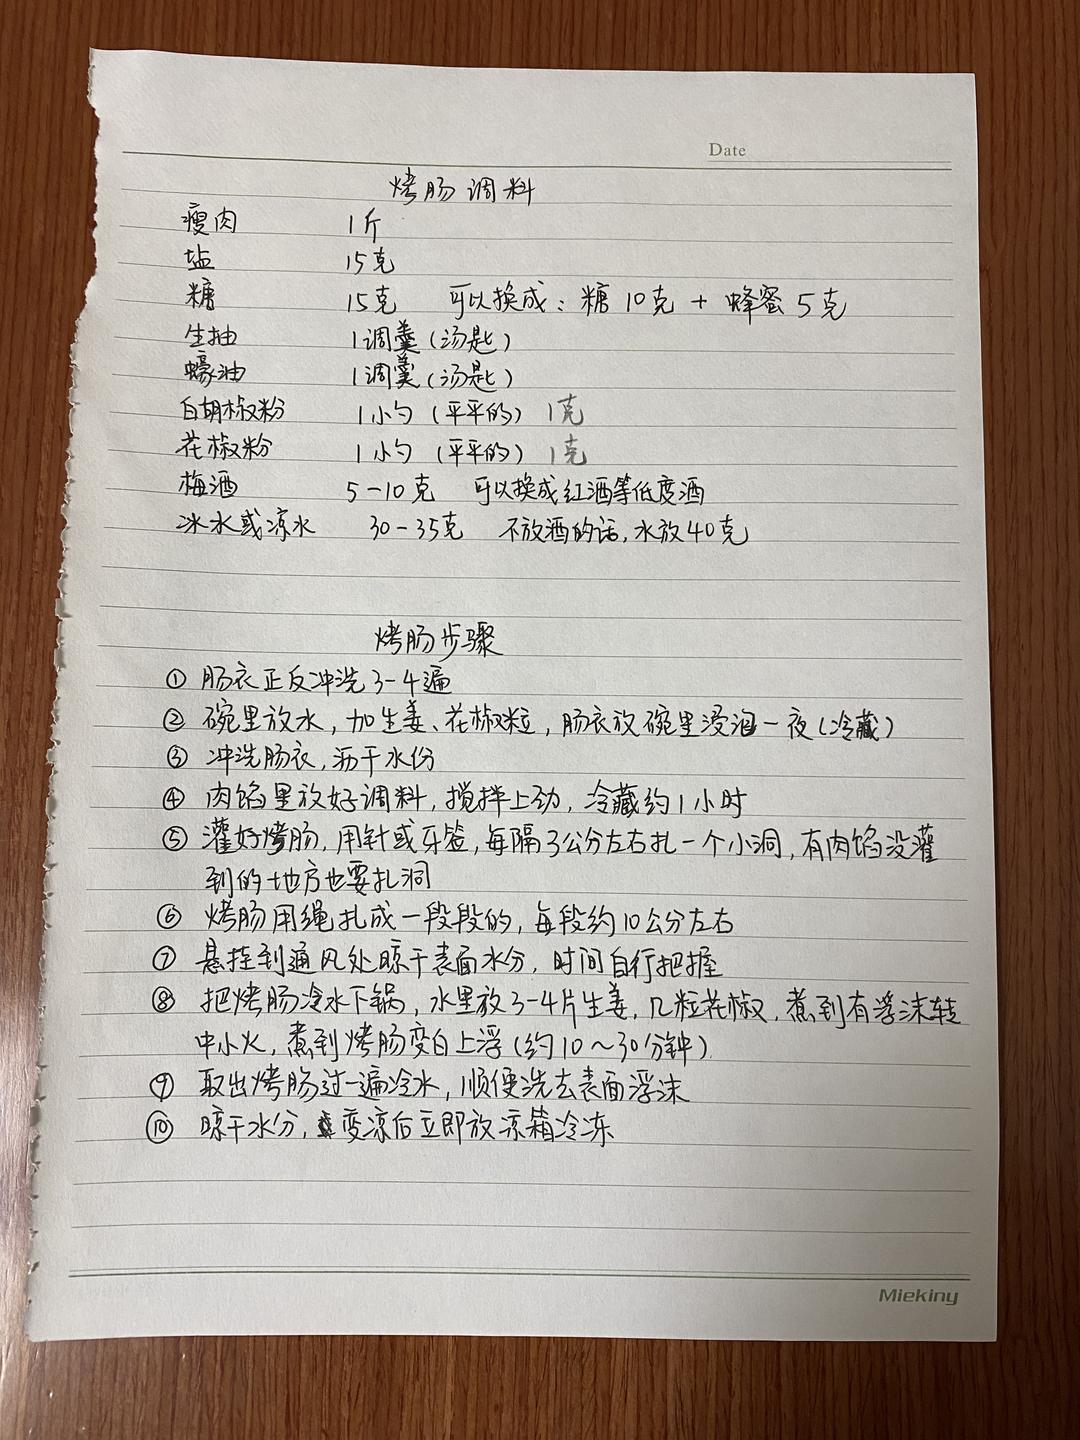 Date
烤肠调料
瘦肉 1斤
盐 15克
糖 15克 可以换成：糖10克 + 蜂蜜5克
生抽 1调羹(汤匙)
蠔油 1调羹(汤匙)
白胡椒粉 1小勺(平平的) 1克
花椒粉 1小勺(平平的) 1克
梅酒 5-10克 可以换成红酒等低度酒
冰水或凉水 30-35克 不放酒的话，水放40克
烤肠步骤
① 肠衣正反冲洗3-4遍
② 碗里放水，加生姜、花椒粒，肠衣放碗里浸泡一夜(冷藏)
③ 冲洗肠衣，沥干水份
④ 肉馅里放好调料，搅拌上劲，冷藏约1小时
⑤ 灌好烤肠，用针或牙签，每隔3公分左右扎一个小洞，有肉馅没灌
到的地方也要扎洞
⑥ 烤肠用绳扎成一段段的，每段约10公分左右
⑦ 悬挂到通风处晾干表面水分，时间自行把握
⑧ 把烤肠冷水下锅，水里放3-4片生姜，几粒花椒，煮到有浮沫转
中小火，煮到烤肠变白上浮(约10～30分钟)
⑨ 取出烤肠过一遍冷水，顺便洗去表面浮沫
⑩ 晾干水分，变凉后立即放凉箱冷冻
Miekiny